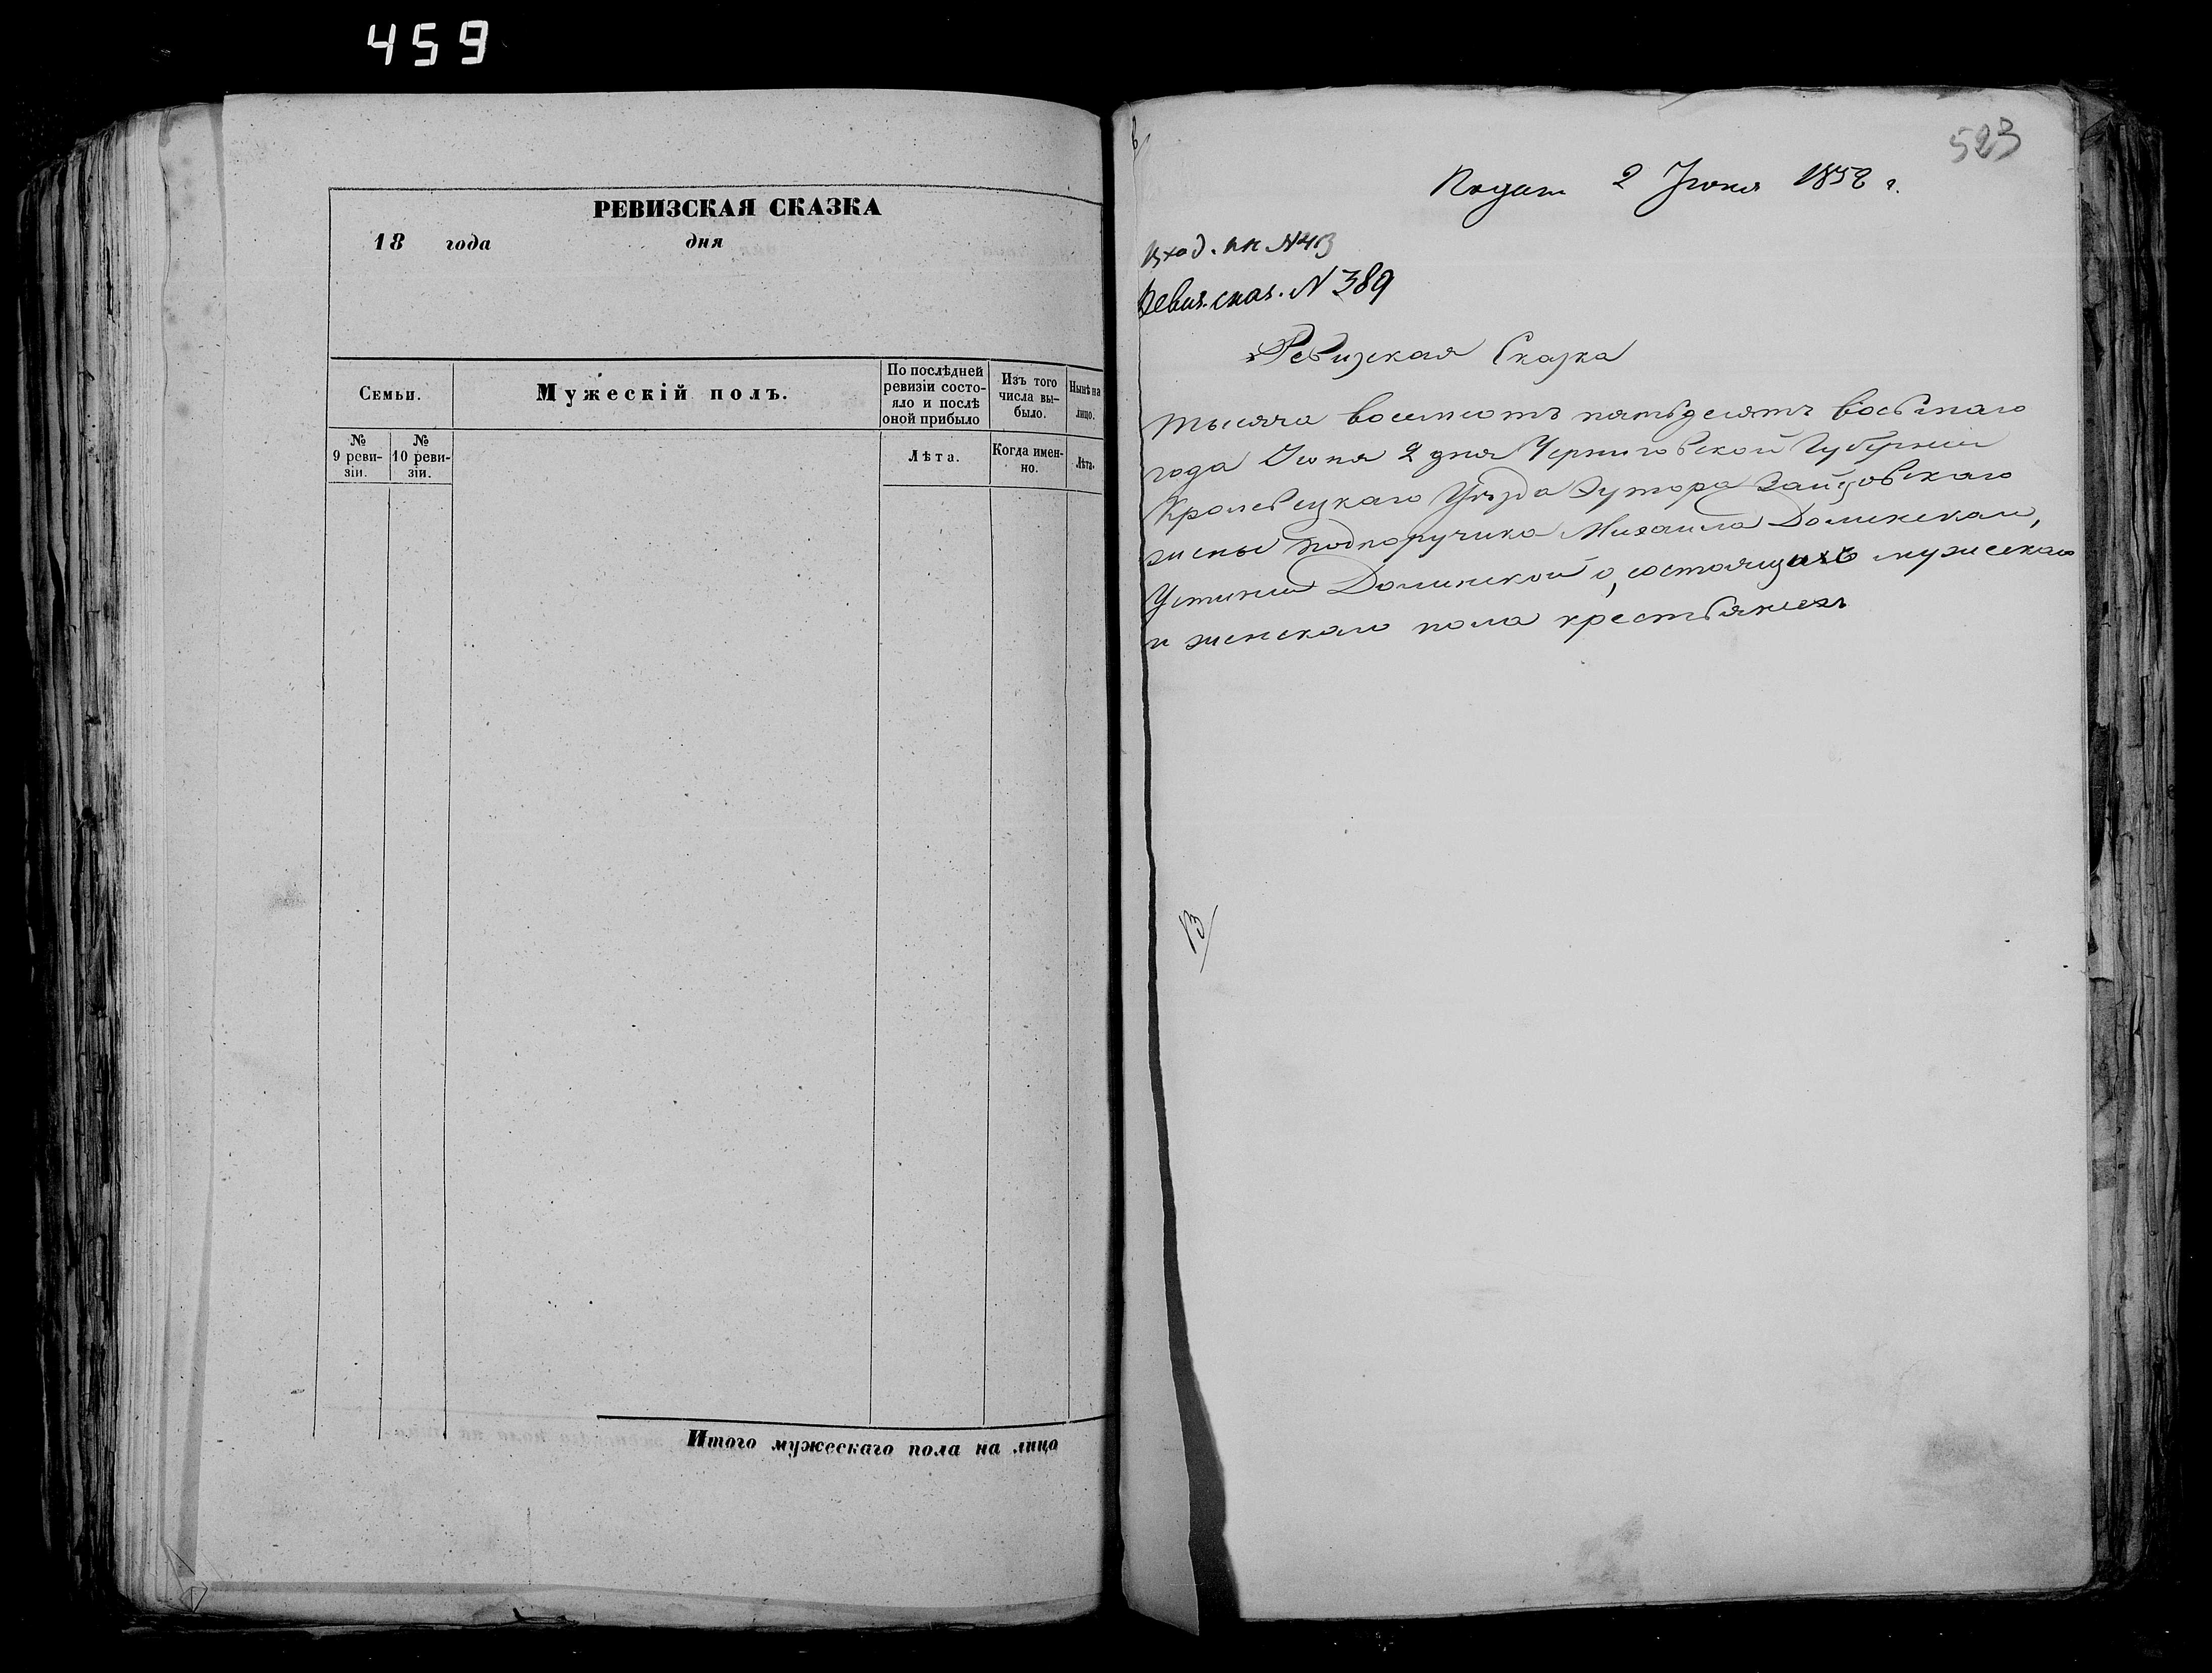 459
РЕВИЗСКАЯ СКАЗКА
18 года дня
Семьи.
Мужескій полъ.
По послѣдней ревизіи состо-
яло и послѣ
оной прибыло
Изъ того
числа вы-
было.
Нынѣ на
лицо.
№
9 реви-
зіи.
№
10 реви-
зіи.
Лѣта.
Когда имен-
но.
Лѣта.
Итого мужескаго пола на лицо
523
Подат 2 Іюня 1858 г.
Вход. № 413
Ревиз. сказ. N 389
Ревизская Сказка
тысяча восемьсотъ пятьдесятъ восьмаго
года Іюня 2 дня Черниговской Губерніи
Кролевецкаго Уѣзда Хутора Зайцовскаго
жены подпоручика Михаила Долинскаго,
Устиніи Долинской о, состоящихъ мужескаго
и женскаго пола крестьянехъ
13